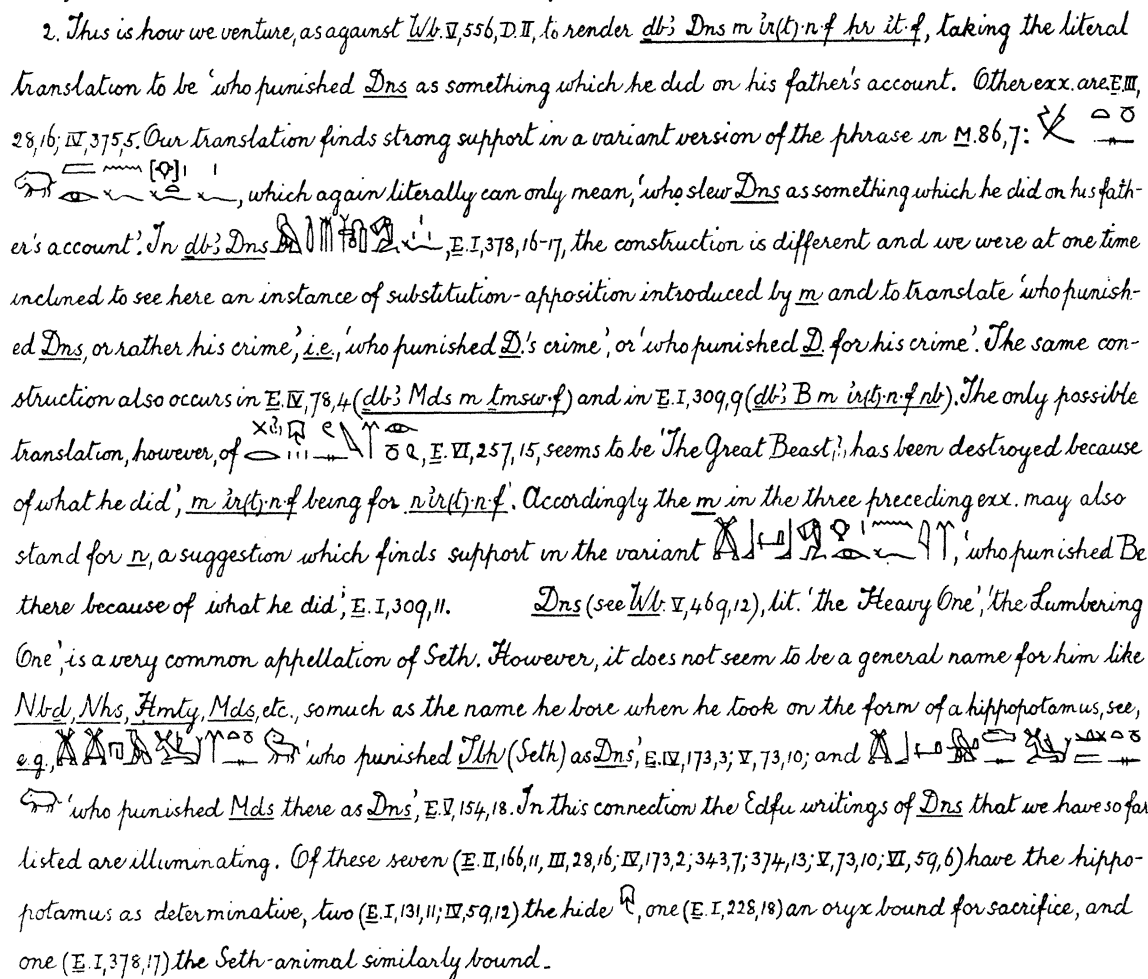 2. This is how we venture, as against Wb. V, 556, D. II, to render dbꜣ Dns m ir(t)·n·f ḥr it·f, taking the literal
translation to be 'who punished Dns as something which he did on his father's account. Other exx. are E. III,
28,16; IV, 375,5. Our translation finds strong support in a variant version of the phrase in M. 86,7:
, which again literally can only mean, 'who slew Dns as something which he did on his fath-
er's account'. In dbꜣ Dns , E. I, 378, 16-17, the construction is different and we were at one time
inclined to see here an instance of substitution-apposition introduced by m and to translate 'who punish-
ed Dns, or rather his crime', i.e., 'who punished D.'s crime', or 'who punished D. for his crime'. The same con-
struction also occurs in E. IV, 78,4 (dbꜣ Mds m tmsw·f) and in E. I, 309,9 (dbꜣ B m ir(t)·n·f nb). The only possible
translation, however, of , E. VI, 257,15, seems to be 'The Great Beast, has been destroyed because
of what he did', m ir(t)·n·f being for n ir(t)·n·f. Accordingly the m in the three preceding exx. may also
stand for n, a suggestion which finds support in the variant , 'who punished Be
there because of what he did', E. I, 309,11. Dns (see Wb. V, 469,12), lit. 'the Heavy One', 'the Lumbering
One', is a very common appellation of Seth. However, it does not seem to be a general name for him like
Nbd, Nhs, Ḥmty, Mds, etc., so much as the name he bore when he took on the form of a hippopotamus, see,
e.g., 'who punished Tbh (Seth) as Dns', E. IV, 173,3; V, 73,10; and
'who punished Mds there as Dns', E. V, 154,18. In this connection the Edfu writings of Dns that we have so far
listed are illuminating. Of these seven (E. II, 166,11, III, 28,16; IV, 173,2; 343,7; 374,13; V, 73,10; VI, 59,6) have the hippo-
potamus as determinative, two (E. I, 131,11; IV, 59,12) the hide , one (E. I, 228,18) an oryx bound for sacrifice, and
one (E. I, 378,17) the Seth-animal similarly bound.